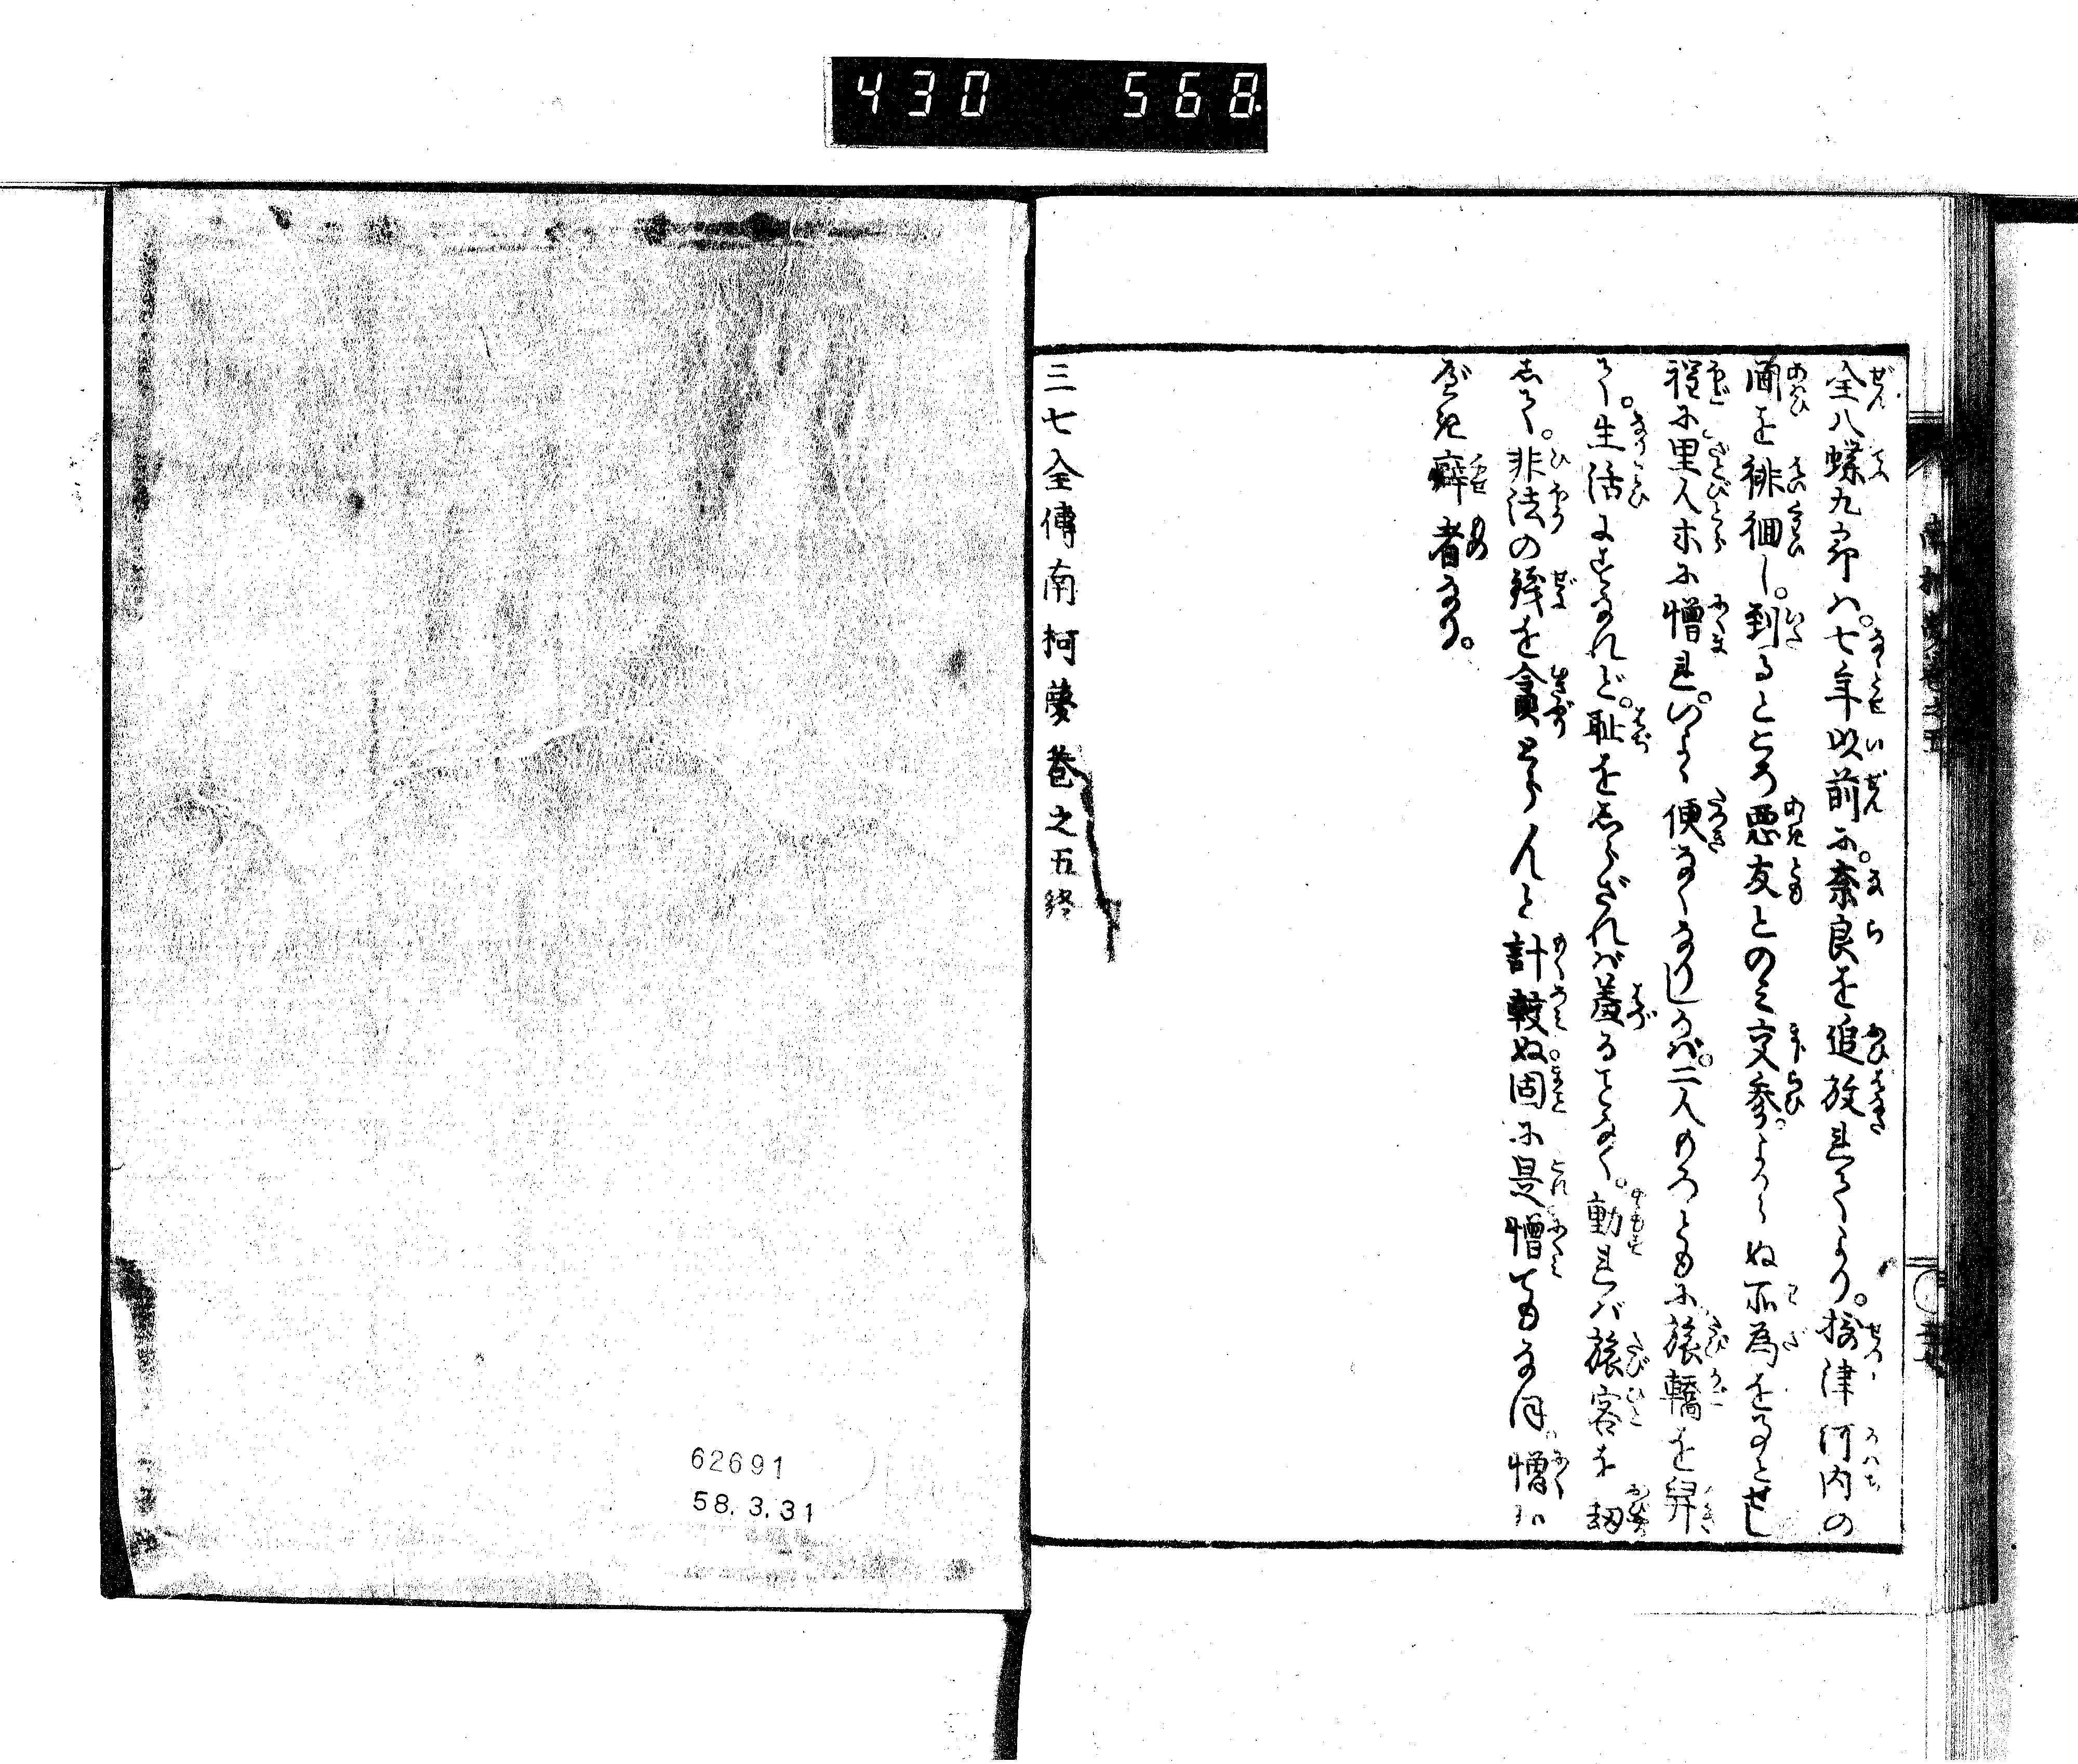 430 568
全八蝶九郎ハ。七年以前に。奈良を追放れてより。摂津河内の
間を徘徊し。到るところ悪友とのミ交参。よからぬ所為を事とせし
程に里人等に憎れ。いよいよ便なくなりしかバ。二人のものともに旅轎を舁
て。生活にすなれど。恥をしらざれバ羞ることなく。動れバ旅客を劫
して。非法の銭を貪とらんと計較ぬ。固に是憎てもなほ。憎む
べき癖者なり。
三七全傳南柯夢巻之五終
62691
58.3.31